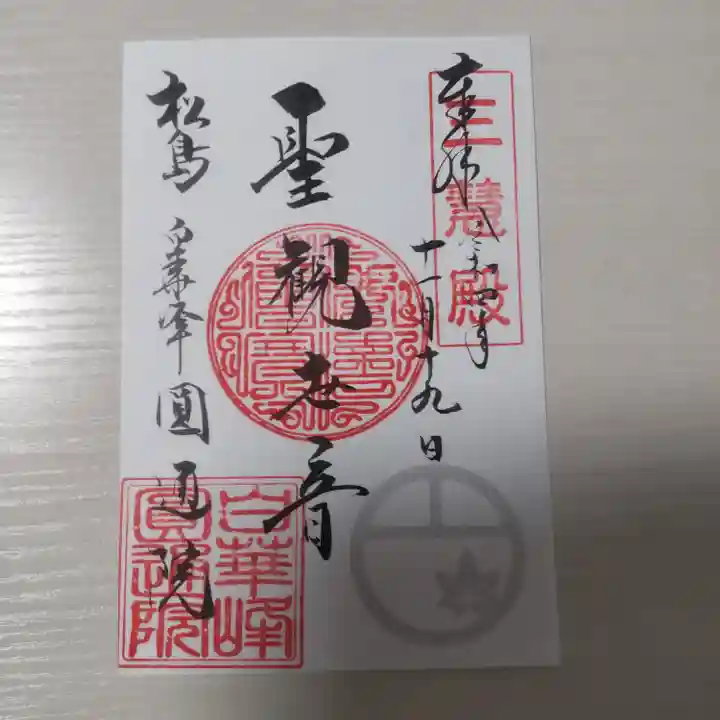 奉拝 令和四年
十一月十九日
三慧殿
聖観世音
松島 白華峰 圓通院
白華峰
圓通院